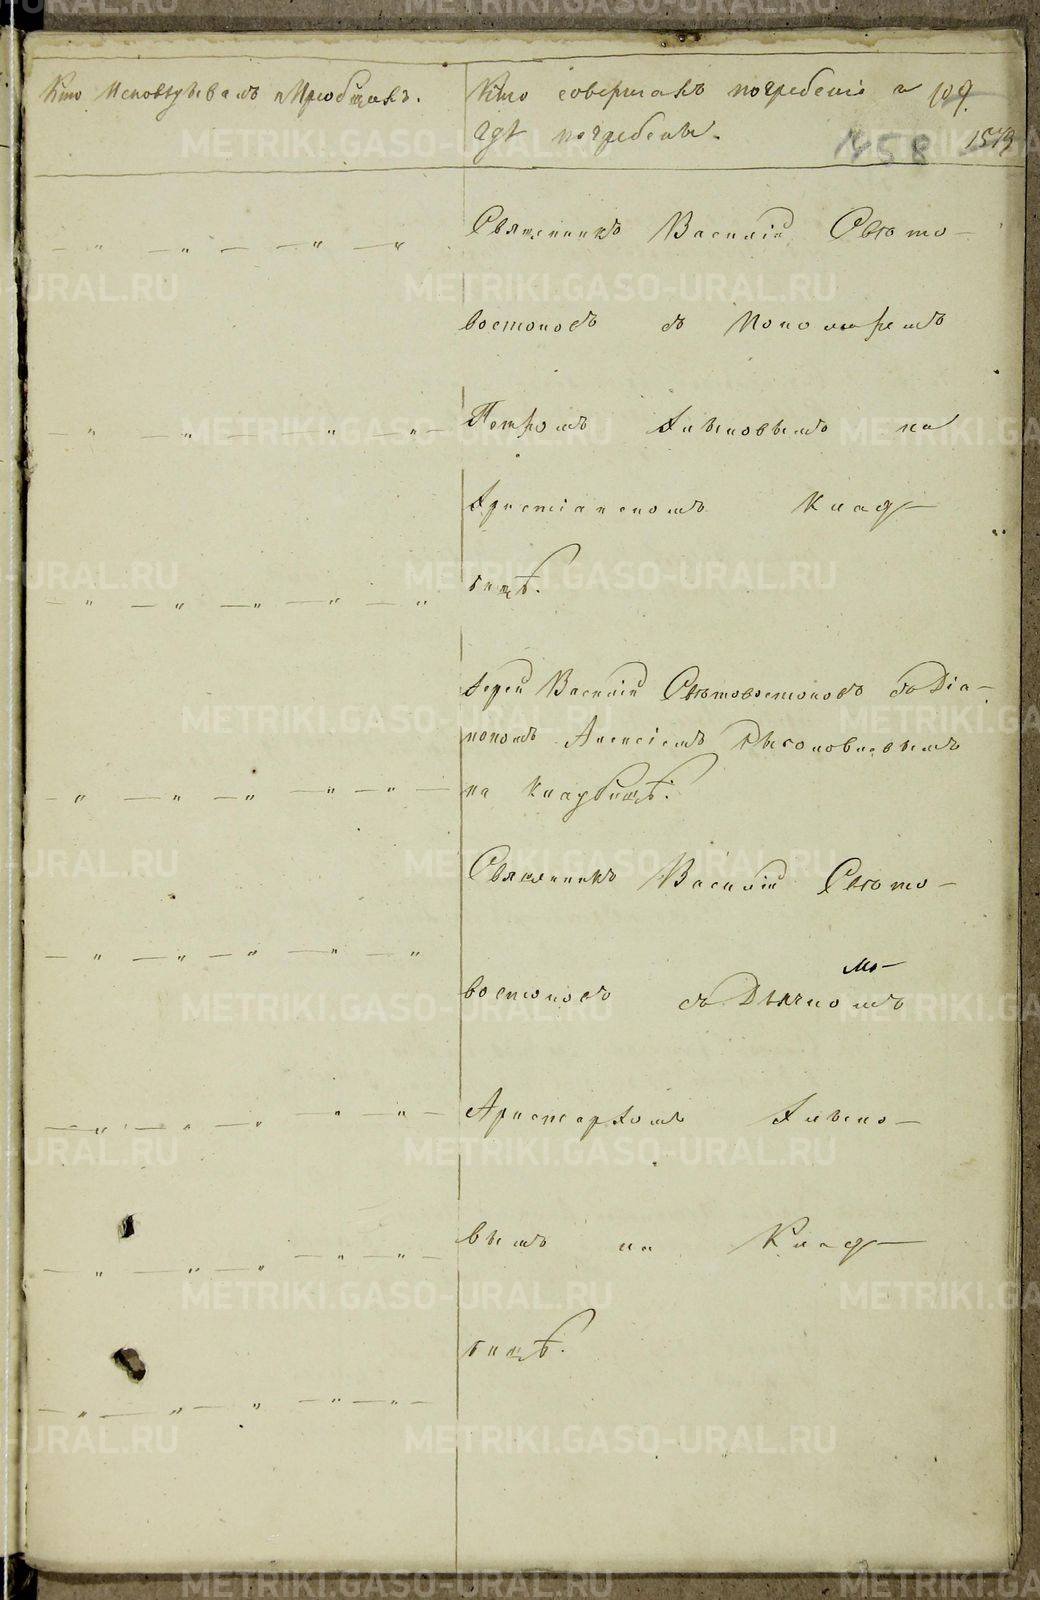 Кто Исповѣдывалъ и Пріобщалъ.
Кто совершалъ погребеніе и
гдѣ погребены.
109.
158
1579
Священникъ Василій Свѣто-
востоковъ съ Пономаремъ
Петромъ на
Христіанскомъ Клад-
бищѣ.
Іерей Василій Свѣтовостоковъ съ Діа-
кономъ Алексіемъ
на Кладбищѣ.
Священникъ Василій Свѣто-
востоковъ съ Дьячкомъ
Аристархомъ
вымъ на Клад-
бищѣ.
METRIKI.GASO-URAL.RU